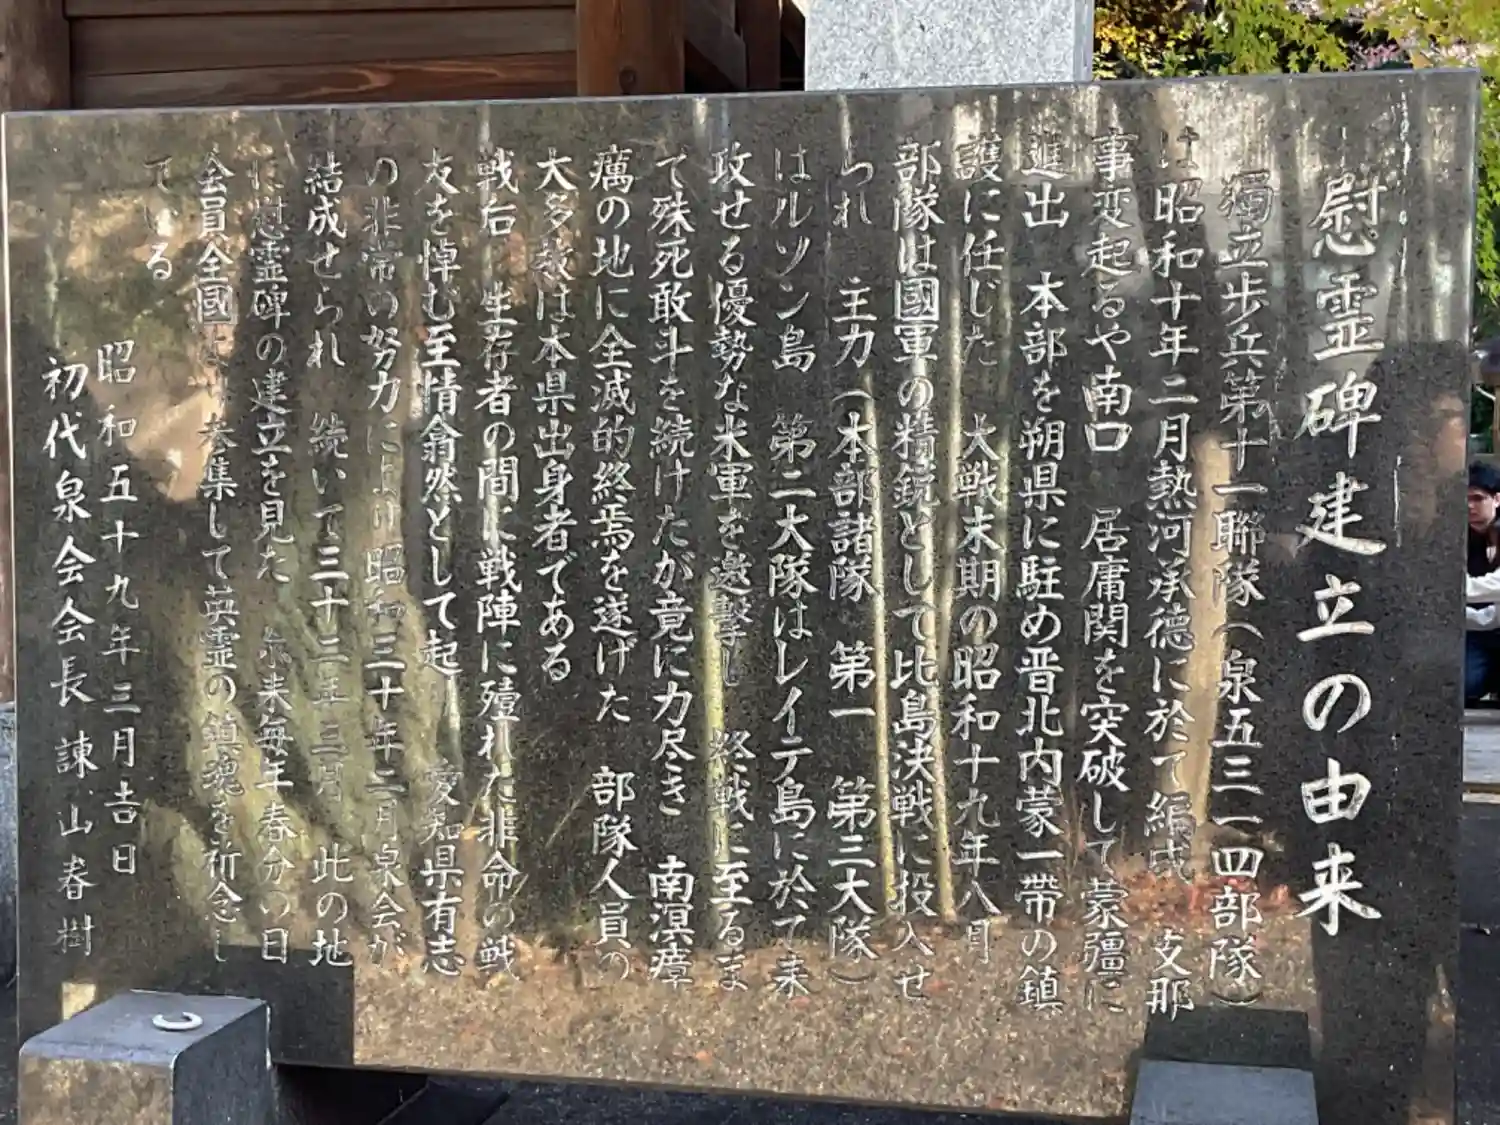 慰霊碑建立の由来
獨立歩兵第十一聯隊(泉五三一四部隊)
は昭和十年二月熱河承德に於て編成 支那
事変起るや南口 居庸関を突破して蒙疆に
進出 本部を朔県に駐め晋北内蒙一帯の鎮
護に任じた 大戦末期の昭和十九年八月
部隊は國軍の精鋭として比島決戦に投入せ
られ 主力(本部諸隊 第一 第三大隊)
はルソン島 第二大隊はレイテ島に於て来
攻せる優勢な米軍を邀撃し 終戦に至るま
で殊死敢斗を続けたが竟に力尽き 南溟瘴
癘の地に全滅的終焉を遂げた 部隊人員の
大多数は本県出身者である
戦后 生存者の間に戦陣に殪れた非命の戦
友を悼む至情翕然として起り 愛知県有志
の非常の努力により昭和三十年二月泉会が
結成せられ 続いて三十三年三月 此の地
に慰霊碑の建立を見た 尓来毎年春分の日
会員全國より参集して英霊の鎮魂を祈念し
ている
昭和五十九年三月吉日
初代泉会会長 諫山春樹